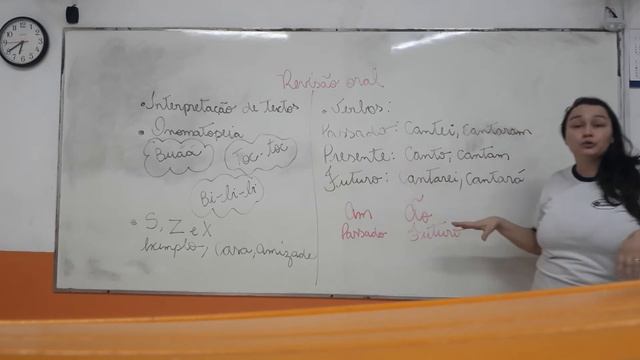 Revisão oral
• Interpretação de textos
• Onomatopeia
Buáá
Toc-toc
Bi-li-li
• S, Z e X
Exemplo, Casa, amizade
• Verbos:
Passado: Cantei, Cantaram
Presente: Canto, Cantam
Futuro: Cantarei, Cantará
Am Ão
Passado Futuro